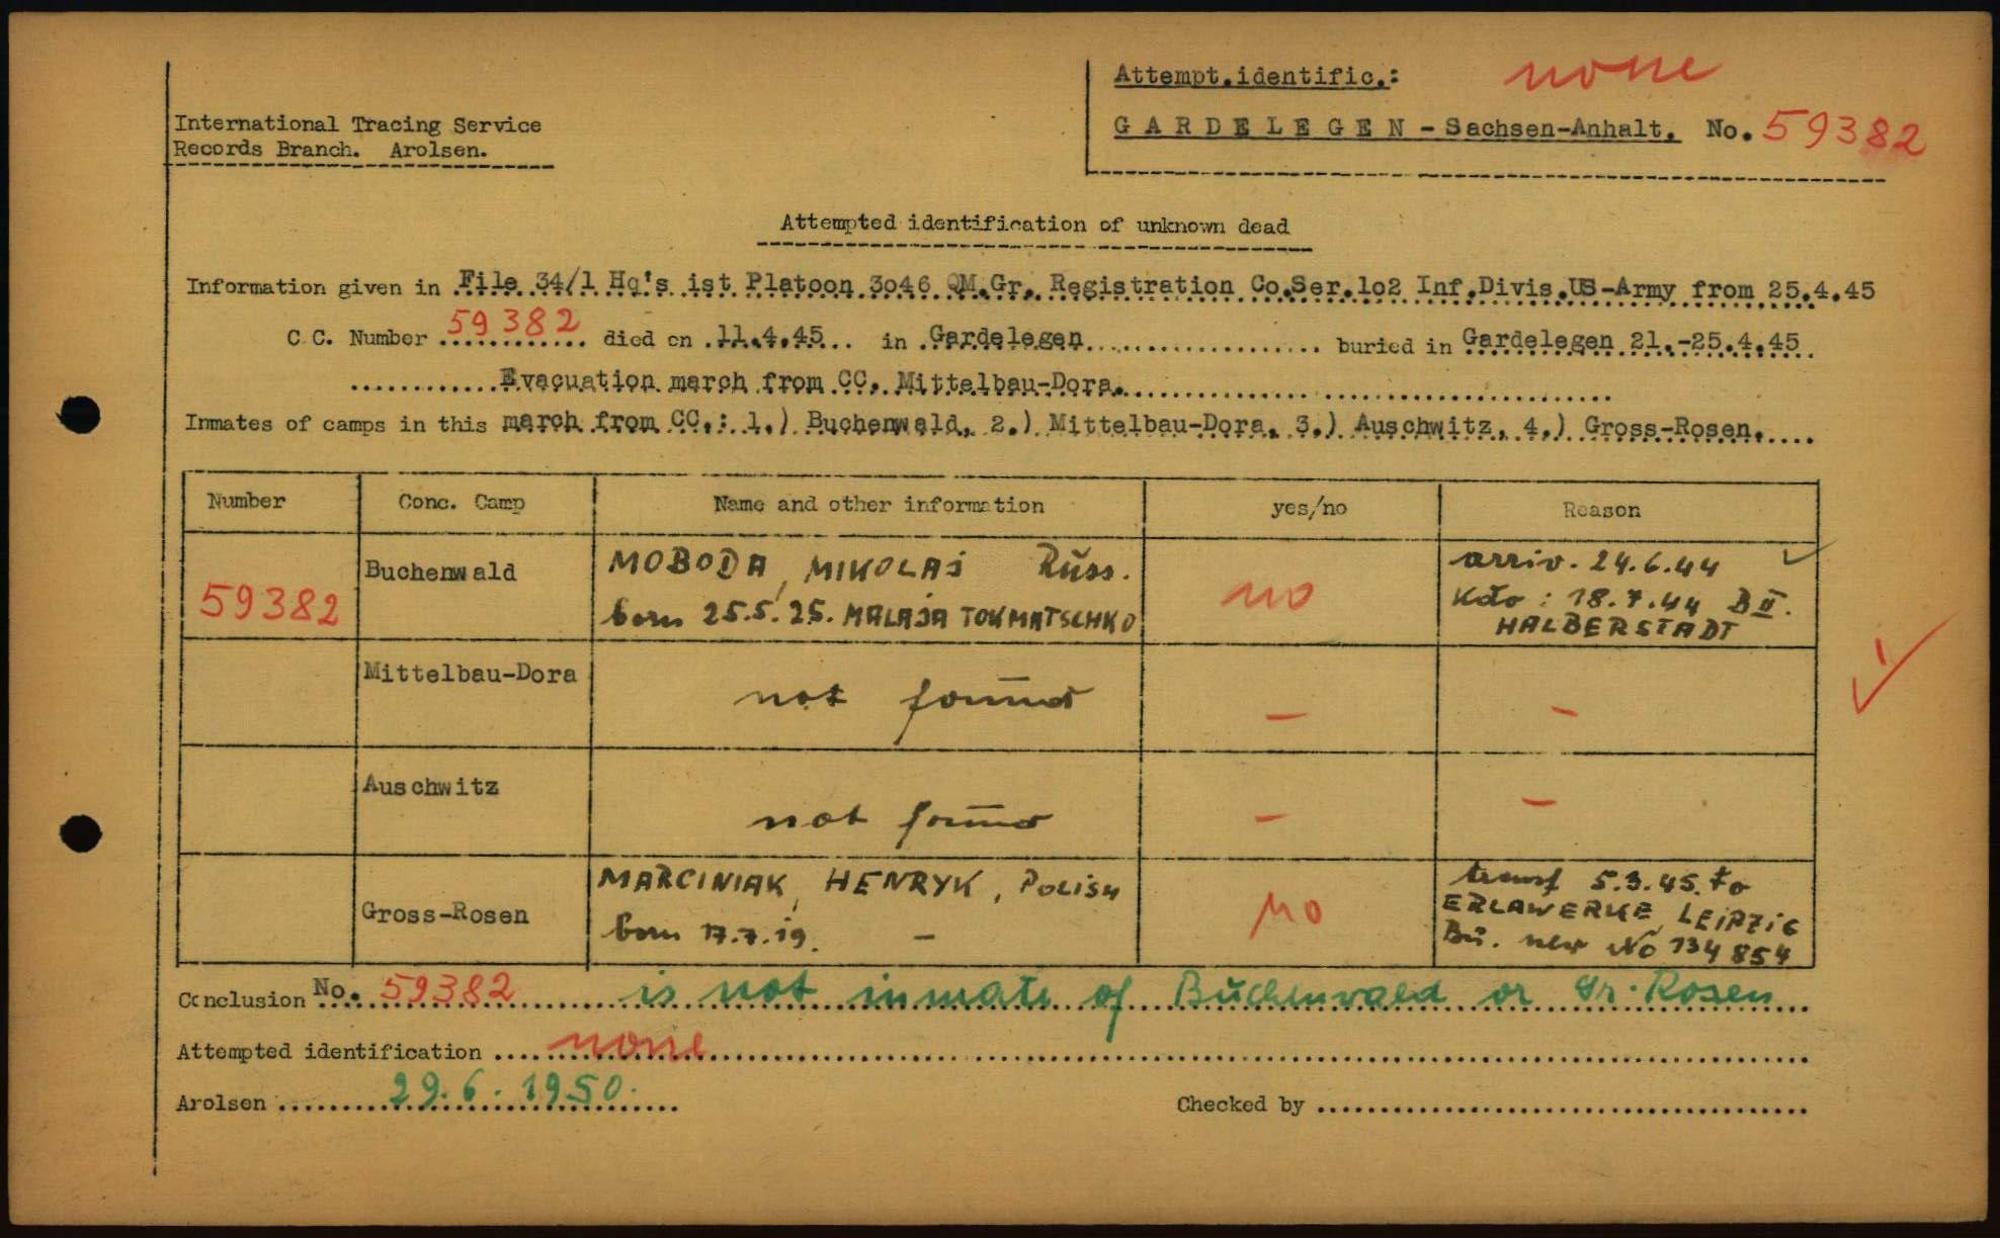 Attempt.identific.: none
International Tracing Service
GARDELEGEN - Sachsen-Anhalt. No. 59382
Records Branch. Arolsen.
Attempted identification of unknown dead
Information given in File 34/1 Hq's ist Platoon 3o46 QM.Gr. Registration Co.Ser.1o2 Inf.Divis.US-Army from 25.4.45
C.C. Number 59382 died on 11.4.45 in Gardelegen buried in Gardelegen 21.-25.4.45
Evacuation march from CC. Mittelbau-Dora.
Inmates of camps in this march from CC.: 1.) Buchenwald, 2.) Mittelbau-Dora, 3.) Auschwitz, 4.) Gross-Rosen.
Number Conc. Camp Name and other information yes/no Reason
59382 Buchenwald MOBODA, MIKOLAJ Russ. no arriv. 24.6.44
born 25.5.25. MALAJA TOKMATSCHKO Kdo: 18.7.44 B II.
HALBERSTADT
Mittelbau-Dora not found - -
Auschwitz not found - -
Gross-Rosen MARCINIAK, HENRYK, POLISH no transf 5.3.45. to
born 17.7.19. - ERLAWERKE, LEIPZIG
Bu. new No 134854
Conclusion No. 59382 is not inmate of Buchenwald or Gr. Rosen
Attempted identification none
Arolsen 29.6.1950. Checked by